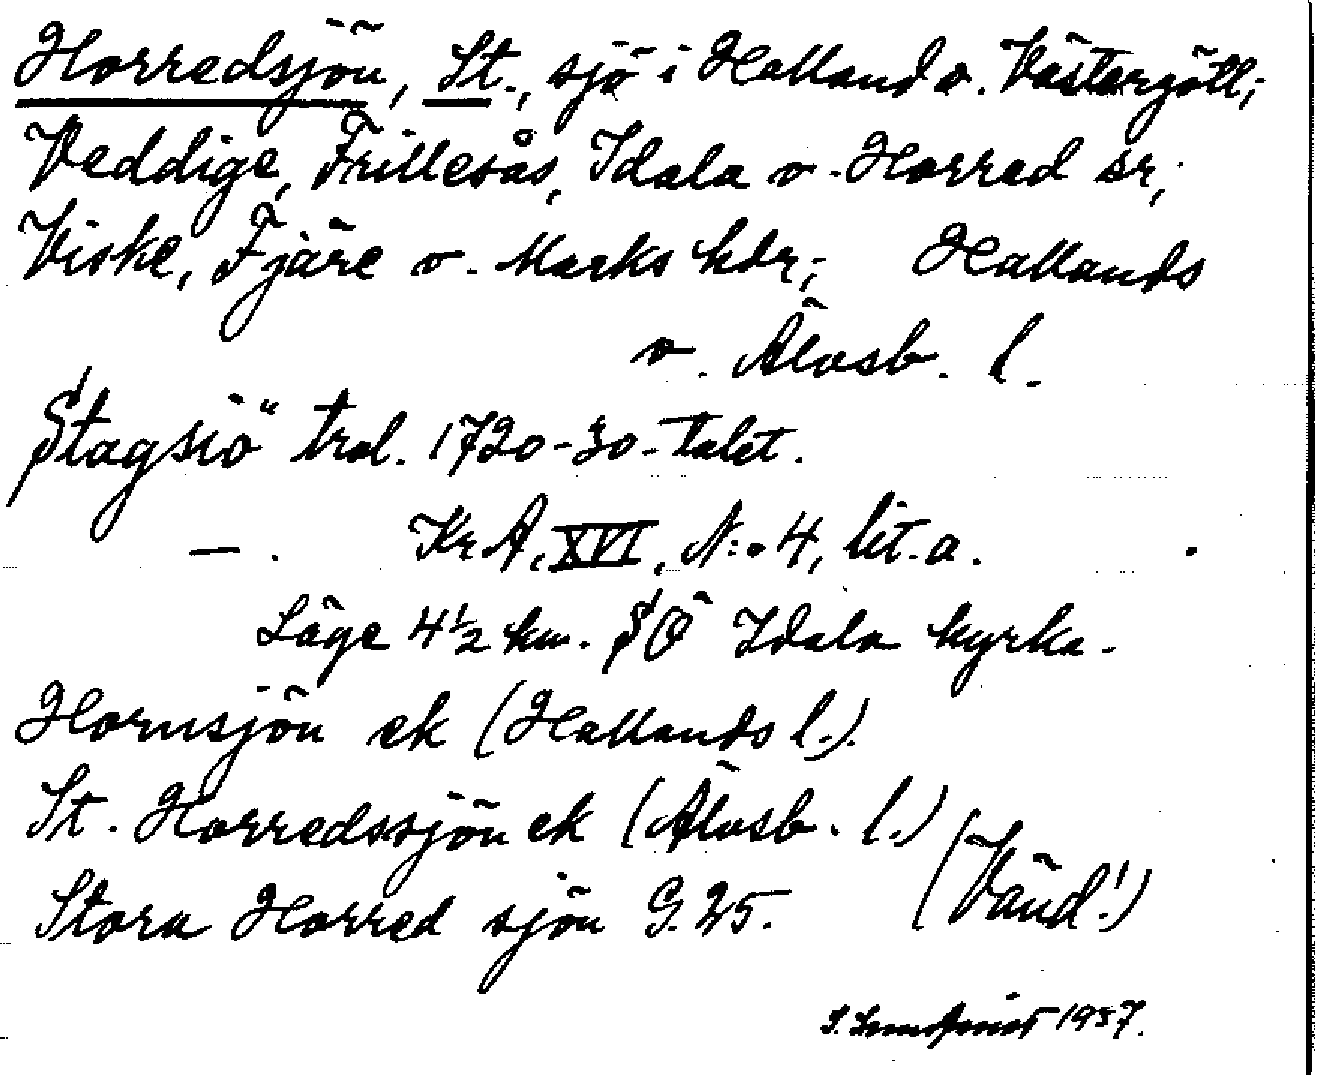 Horredsjön, St., sjö i Halland o. Västergötl;
Veddige, Frillesås, Idala o. Horred sr;
Viske, Fjäre o. Marks hdr; Hallands
o. Älvsb. l.
Stagsiö" trol. 1720-30-talet.
— . KrA, XVI, N:o 4, lit. a.
Läge 4½ km. SÖ Idala kyrka.
Hornsjön ek (Hallands l.).
St. Horredssjön ek (Älvsb. l.)
Stora Horred sjön G. 25. (Vänd!)
S. Lundqvist 1937.